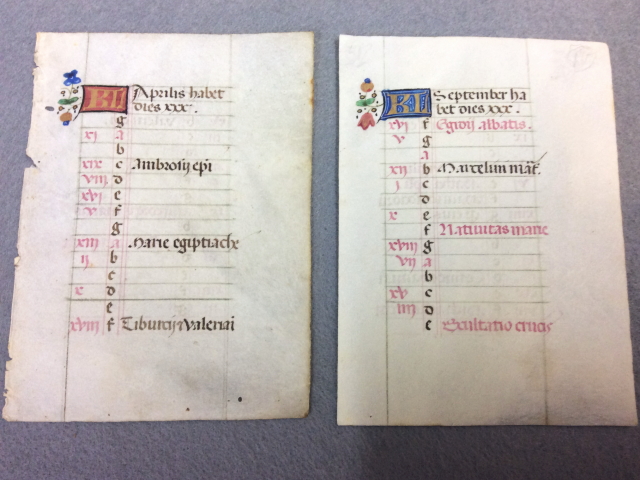 KL Aprilis habet
dies xxx.
g
xi a
b
xix c Ambrosij epi
viij d
xvi e
v f
g
xiij a Marie egiptiache
ij b
c
x d
e
xviij f Tiburcij & Valeriai
KL September ha
bet dies xxx.
xvi f Egidij abbatis.
v g
a
xij b Marcelini
j c
d
x e
f Natiuitas marie
xviij g
vij a
b
xv c
iiij d
e Exultatio crucis